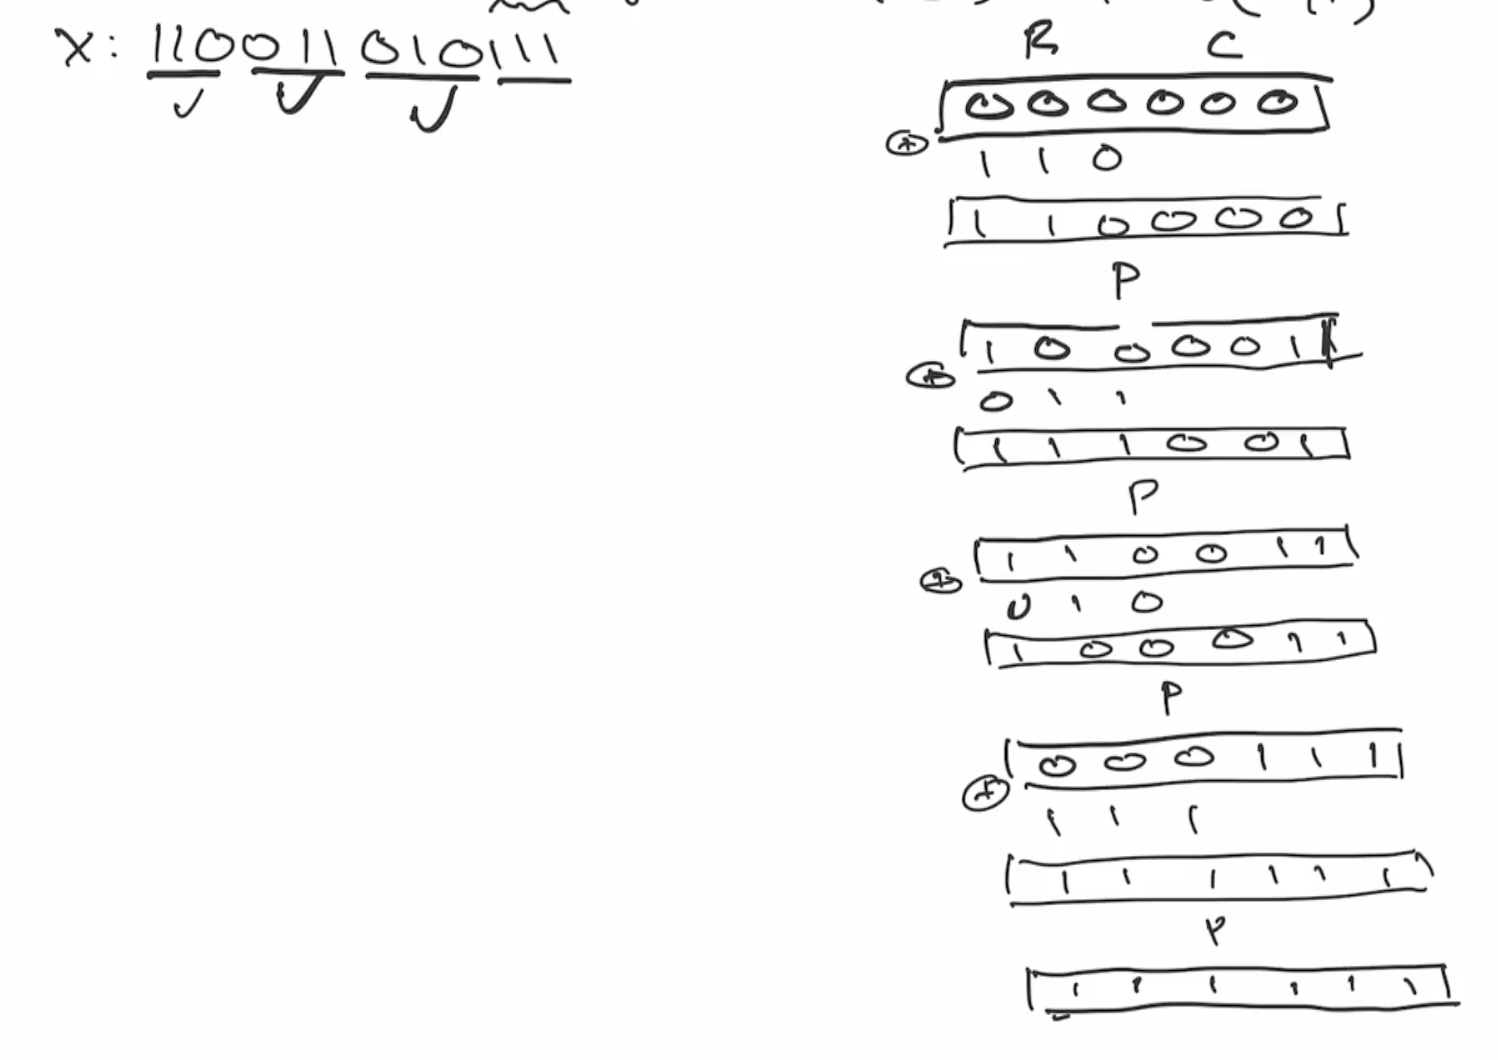 X: 110011010111
R C
0 0 0 0 0 0
⊕
1 1 0
1 1 0 0 0 0
P
1 0 0 0 0 1
⊕
0 1 1
1 1 1 0 0 1
P
1 1 0 0 1 1
⊕
0 1 0
1 0 0 0 1 1
P
0 0 0 1 1 1
⊕
1 1 1
1 1 1 1 1 1
P
1 1 1 1 1 1